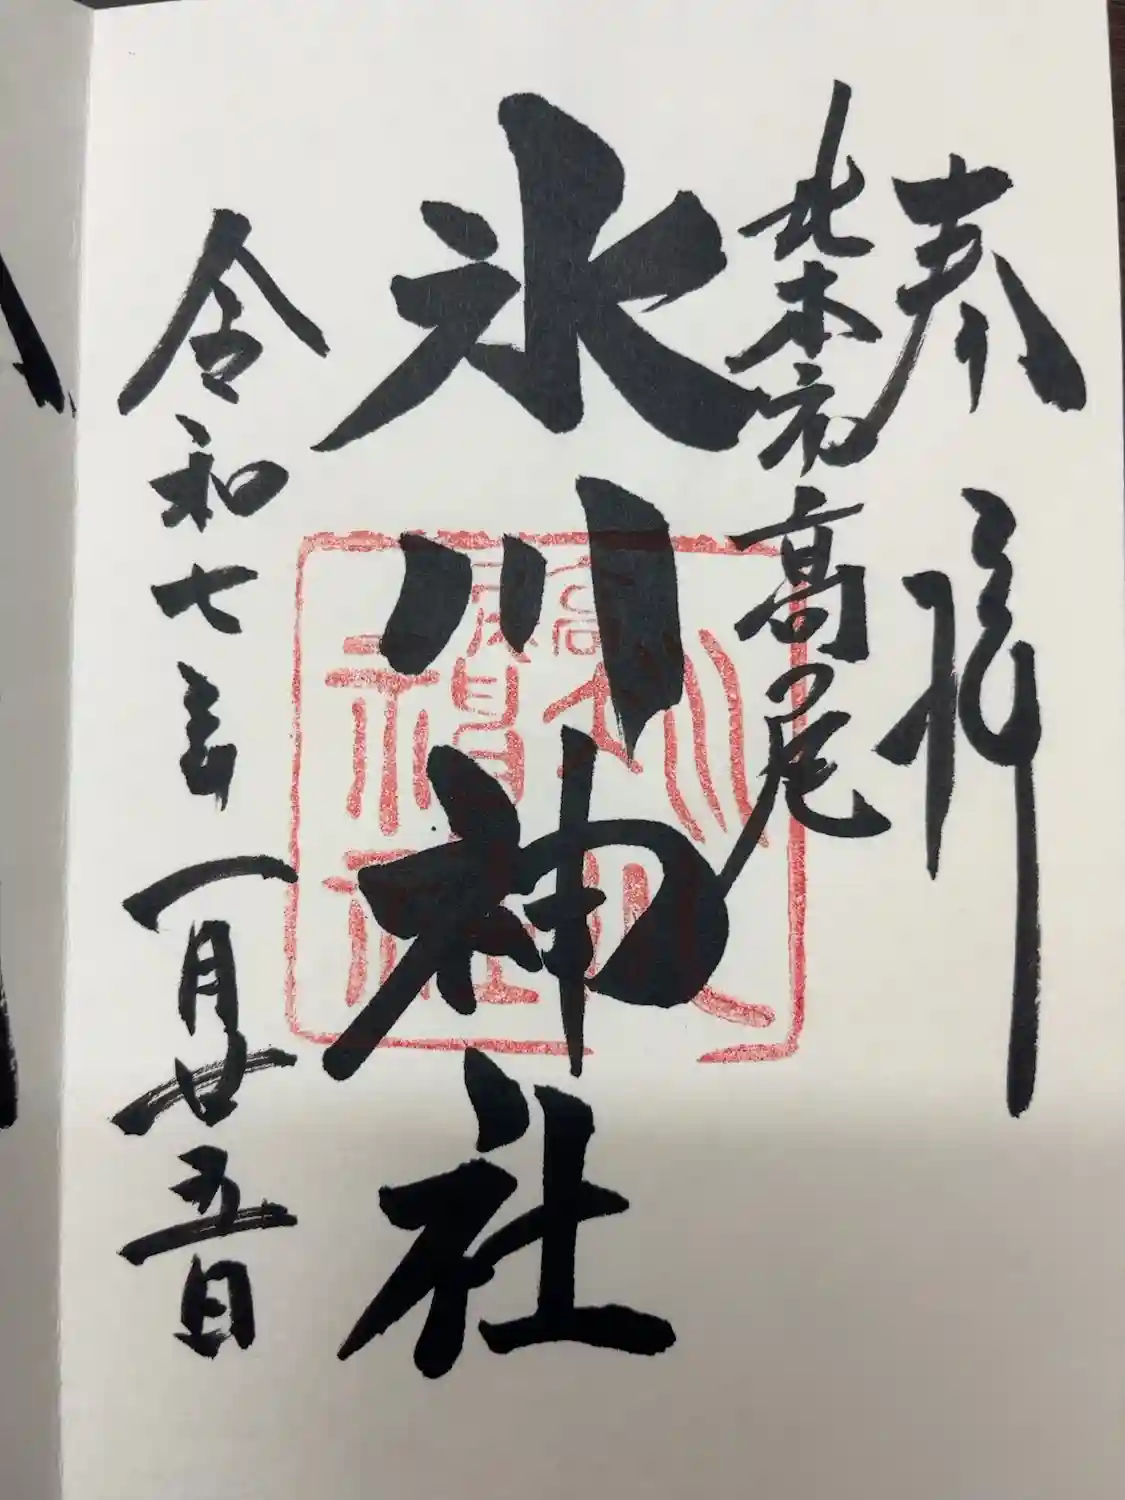 奉拝
北本宿高尾
氷川神社
令和七年一月廿五日